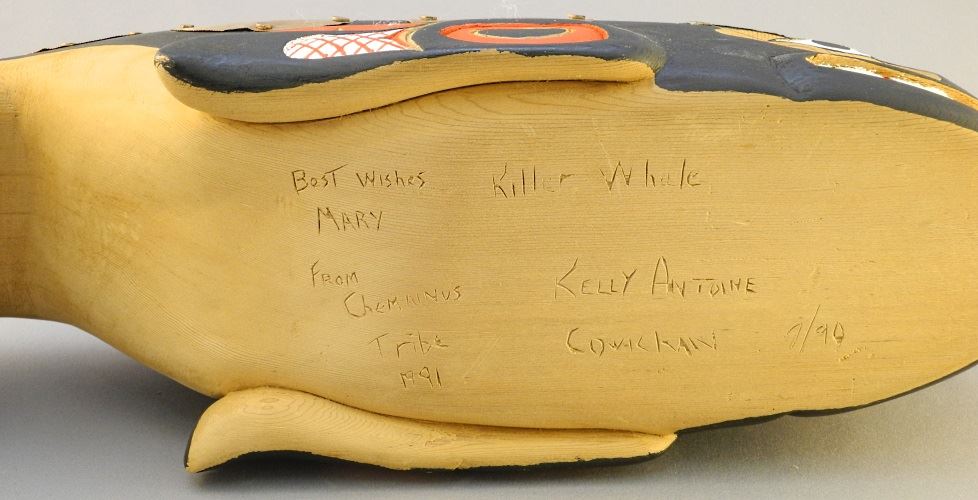 Best Wishes
MARY
From
Chemainus
Tribe
1991
Killer Whale
KELLY ANTOINE
Cowichan 7/90